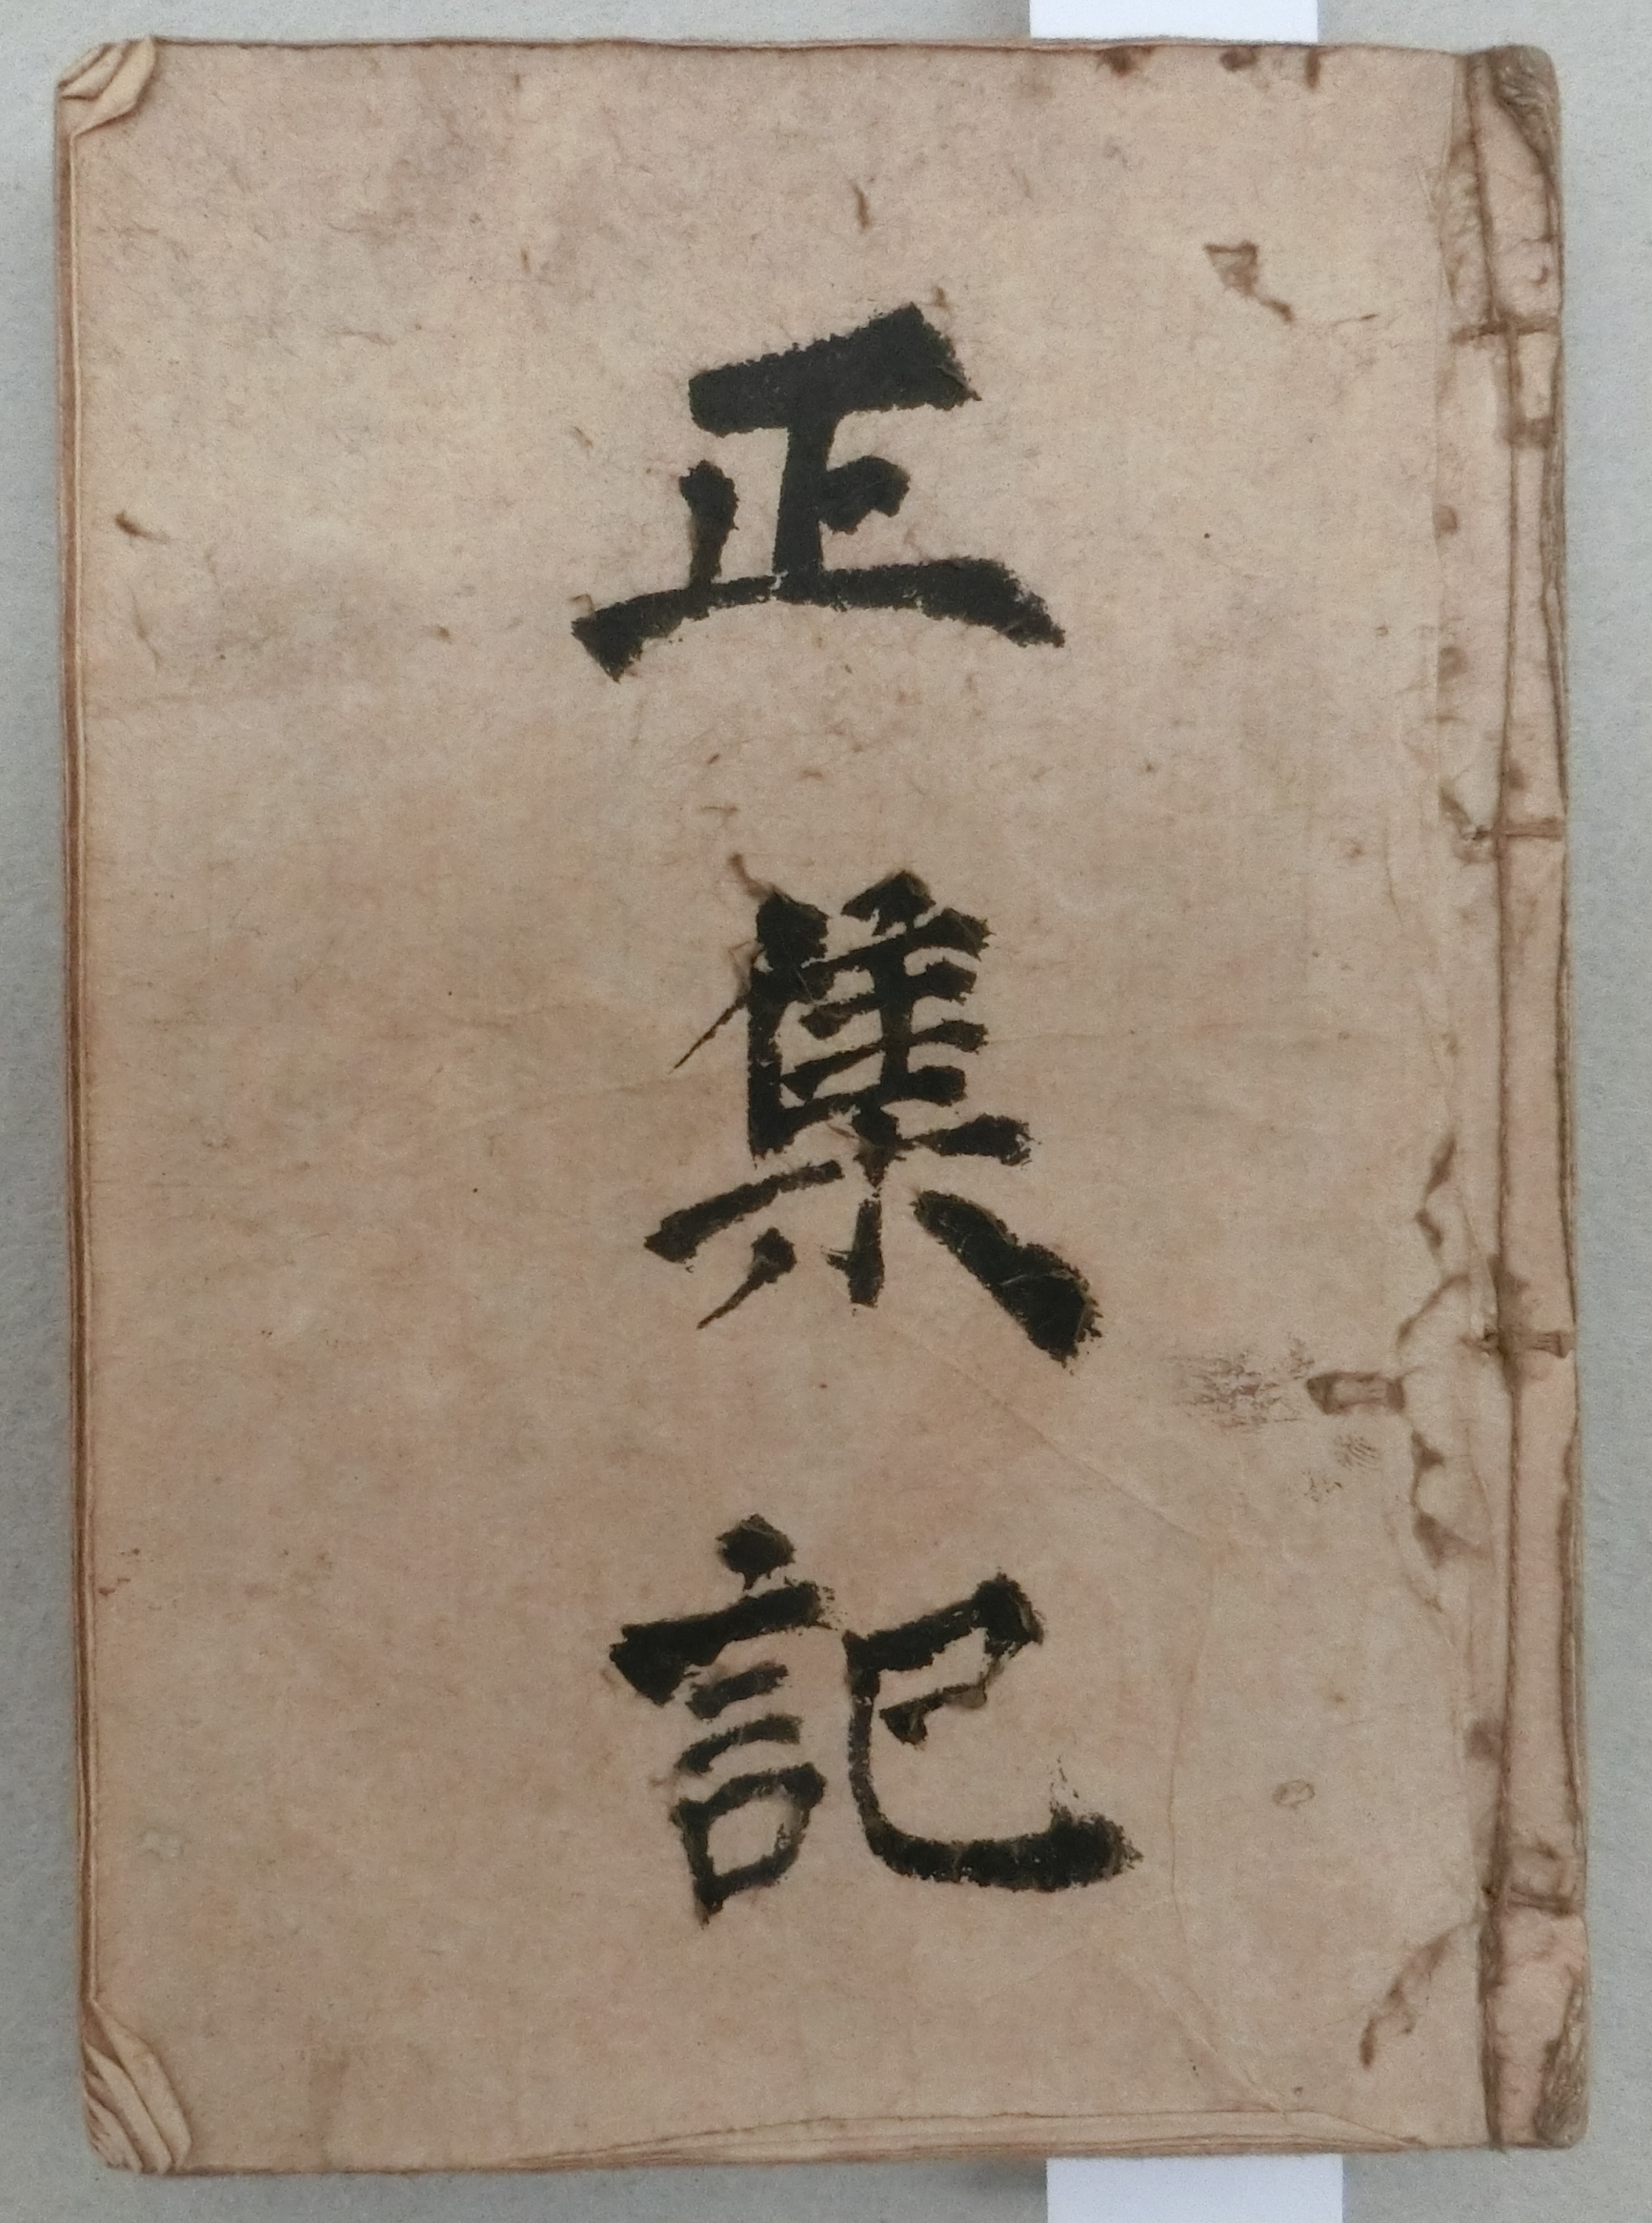 正集記